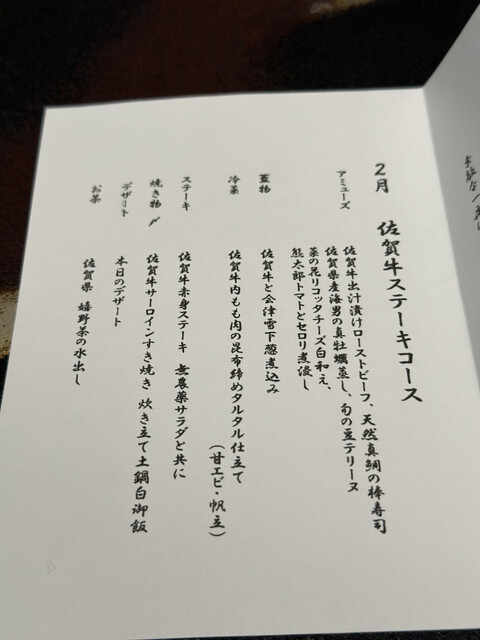 2月 佐賀牛ステーキコース
アミューズ 佐賀牛出汁漬けローストビーフ、天然真鯛の棒寿司
佐賀県産海男の真牡蠣蒸し、旬の豆テリーヌ
菜の花リコッタチーズ白和え、
熊太郎トマトとセロリ煮浸し
蓋物 佐賀牛と会津雪下葱煮込み
冷菜 佐賀牛内もも肉の昆布締めタルタル仕立て
（甘エビ・帆立）
ステーキ 佐賀牛赤身ステーキ 無農薬サラダと共に
焼き物〆 佐賀牛サーロインすき焼き 炊き立て土鍋白御飯
デザート 本日のデザート
お茶 佐賀県 嬉野茶の水出し